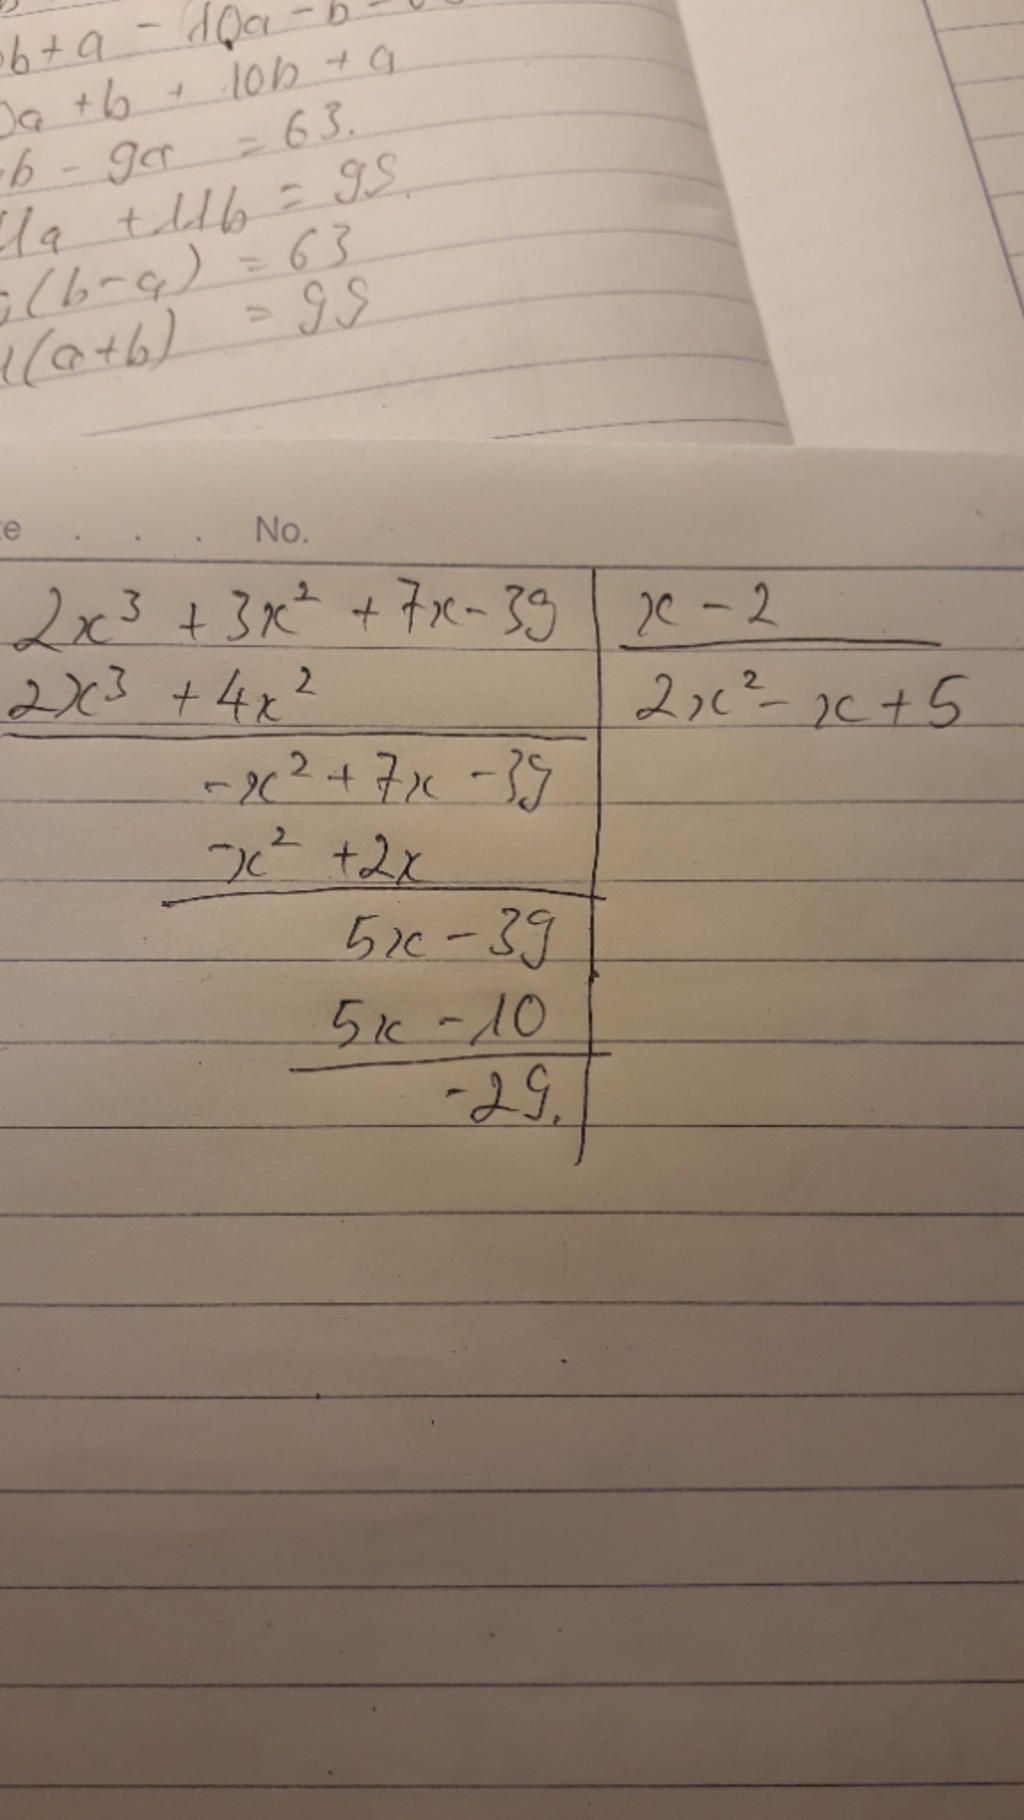 b+a - 10a - b
a + b + 10b + a
b - 9a = 63.
11a + 11b = 99.
(b-a) = 63
(a+b) = 99
No.
2x³ + 3x² + 7x - 39 | x - 2
2x³ + 4x² | 2x² - x + 5
-x² + 7x - 39
-x² + 2x
5x - 39
5x - 10
-29.